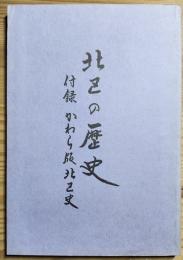 北巳の歴史
付録 かわら版北巳史